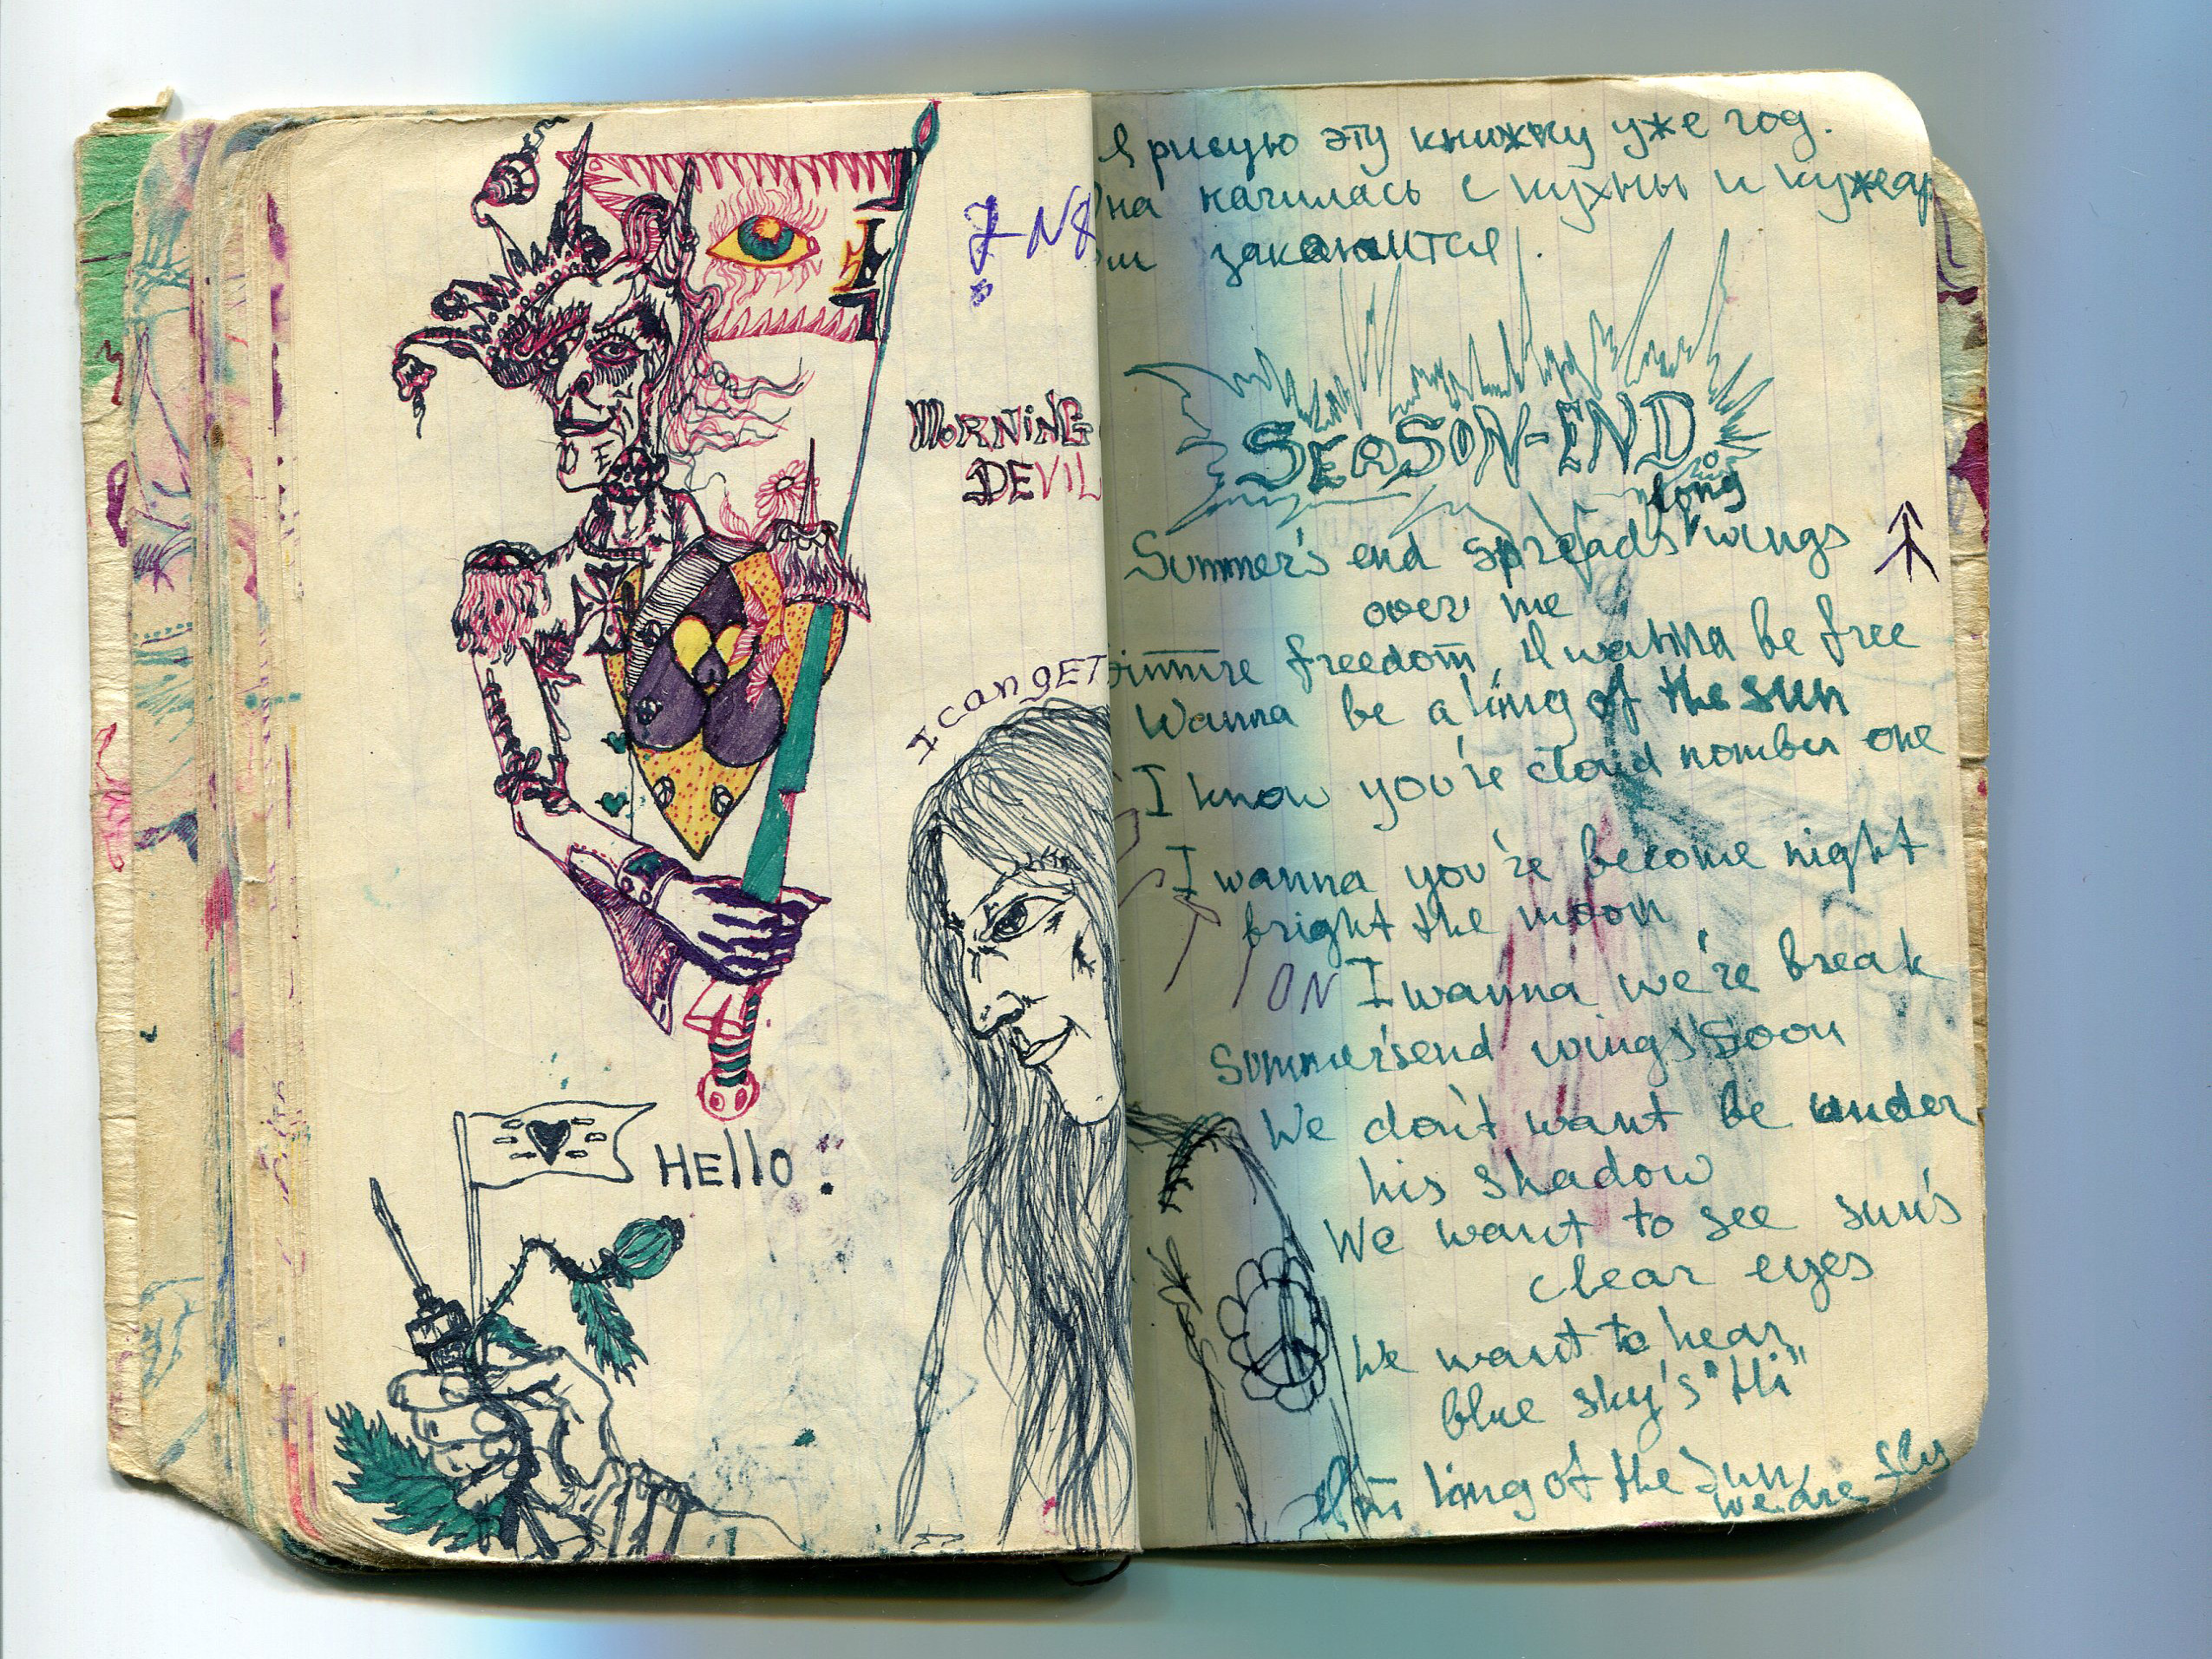 MORNING
DEVIL
I can gET
HEllo!
Я рисую эту книжку уже год.
Она началась с кухны и
закончится.
SEASON-END
long
Summer's end spreads wings
over me
freedom, I wanna be free
Wanna be a king of the sun
I know you're cloud nomber one
I wanna you're become night
bright the moon
ON I wanna we're break
Summer'send wings soon
We don't want be under
his shadow
We want to see sun's
clear eyes
We want to hear
blue sky's "Hi"
I'm king of the Sun
we are fly